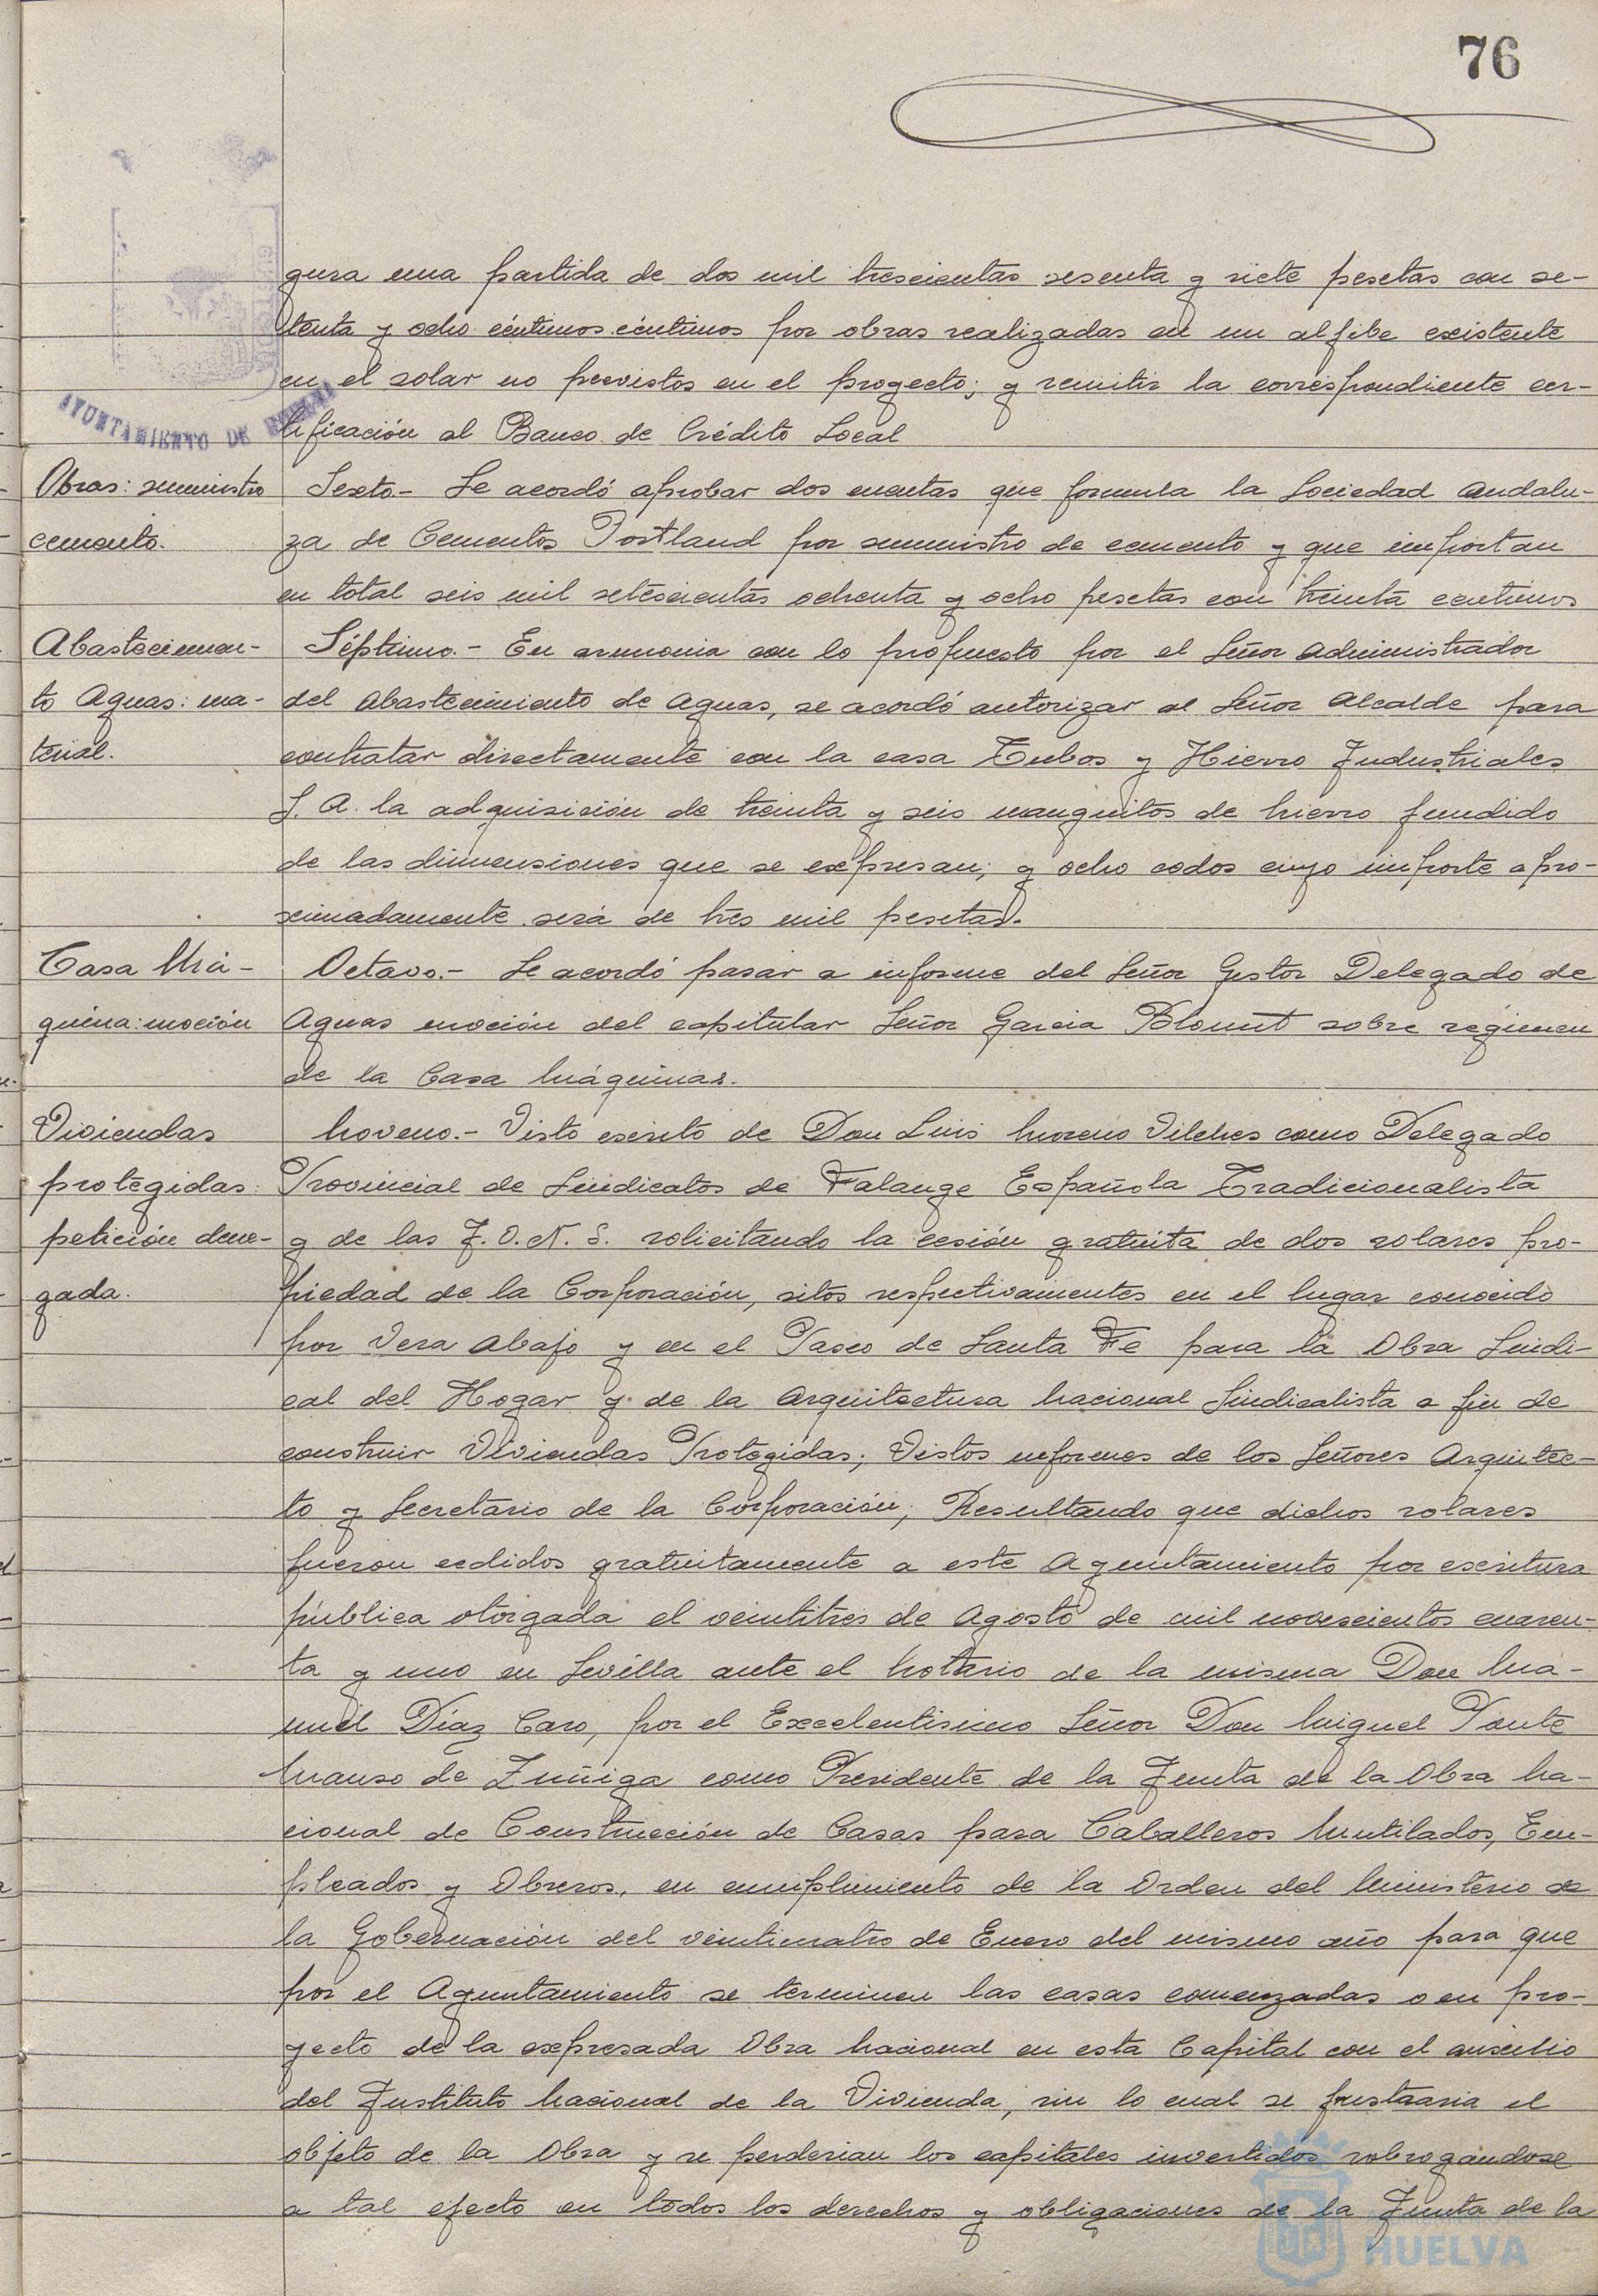 76
gura una partida de dos mil trescientas sesenta y siete pesetas con se-
tenta y ocho céntimos céntimos por obras realizadas en un aljibe existente
en el solar no previstos en el proyecto; y remitir la correspondiente cer-
AYUNTAMIENTO DE HUELVA
tificación al Banco de Crédito Local
Obras: suministro
cemento.
Sexto.- Se acordó aprobar dos cuentas que formula la Sociedad Andalu-
za de Cementos Portland por suministro de cemento y que importan
en total seis mil setescientas ochenta y ocho pesetas con treinta centimos
Abastecimien-
to Aguas: ma-
terial.
Séptimo.- En armonia con lo propuesto por el Señor Administrador
del Abastecimiento de Aguas, se acordó autorizar al Señor Alcalde para
contratar directamente con la casa Tubos y Hierro Industriales
S. A. la adquisición de treinta y seis manguitos de hierro fundido
de las dimensiones que se expresan; y ocho codos cuyo importe apro-
ximadamente será de tres mil pesetas.
Casa Má-
quina: moción
Octavo.- Se acordó pasar a informe del Señor Gestor Delegado de
Aguas moción del capitular Señor Garcia Blount sobre régimen
de la Casa Máquinas.
Viviendas
protegidas:
petición dene-
gada.
Noveno.- Visto escrito de Don Luis Moreno Vilches como Delegado
Provincial de Sindicatos de Falange Española Tradicionalista
y de las J. O. N. S. solicitando la cesión gratuita de dos solares pro-
piedad de la Corporación, sitos respectivamentes en el lugar conocido
por Vera Abajo y en el Paseo de Santa Fe para la Obra Sindi-
cal del Hogar y de la Arquitectura Nacional Sindicalista a fin de
construir Viviendas Protegidas; Vistos informes de los Señores Arquitec-
to y Secretario de la Corporación; Resultando que dichos solares
fueron cedidos gratuitamente a este Ayuntamiento por escritura
pública otorgada el veintitres de Agosto de mil novescientos cuaren-
ta y uno en Sevilla ante el Notario de la misma Don Ma-
nuel Díaz Caro, por el Excelentisimo Señor Don Miguel Ponte
Manso de Zuñiga como Presidente de la Junta de la Obra Na-
cional de Construcción de Casas para Caballeros Mutilados, Em-
pleados y Obreros, en cumplimiento de la Orden del Ministerio de
la Gobernación del veinticuatro de Enero del mismo año para que
por el Ayuntamiento se terminen las casas comenzadas o en pro-
yecto de la expresada Obra Nacional en esta Capital con el auxilio
del Instituto Nacional de la Vivienda, sin lo cual se frustraria el
objeto de la Obra y se perderian los capitales invertidos subrogandose
a tal efecto en todos los derechos y obligaciones de la Junta de la
HUELVA